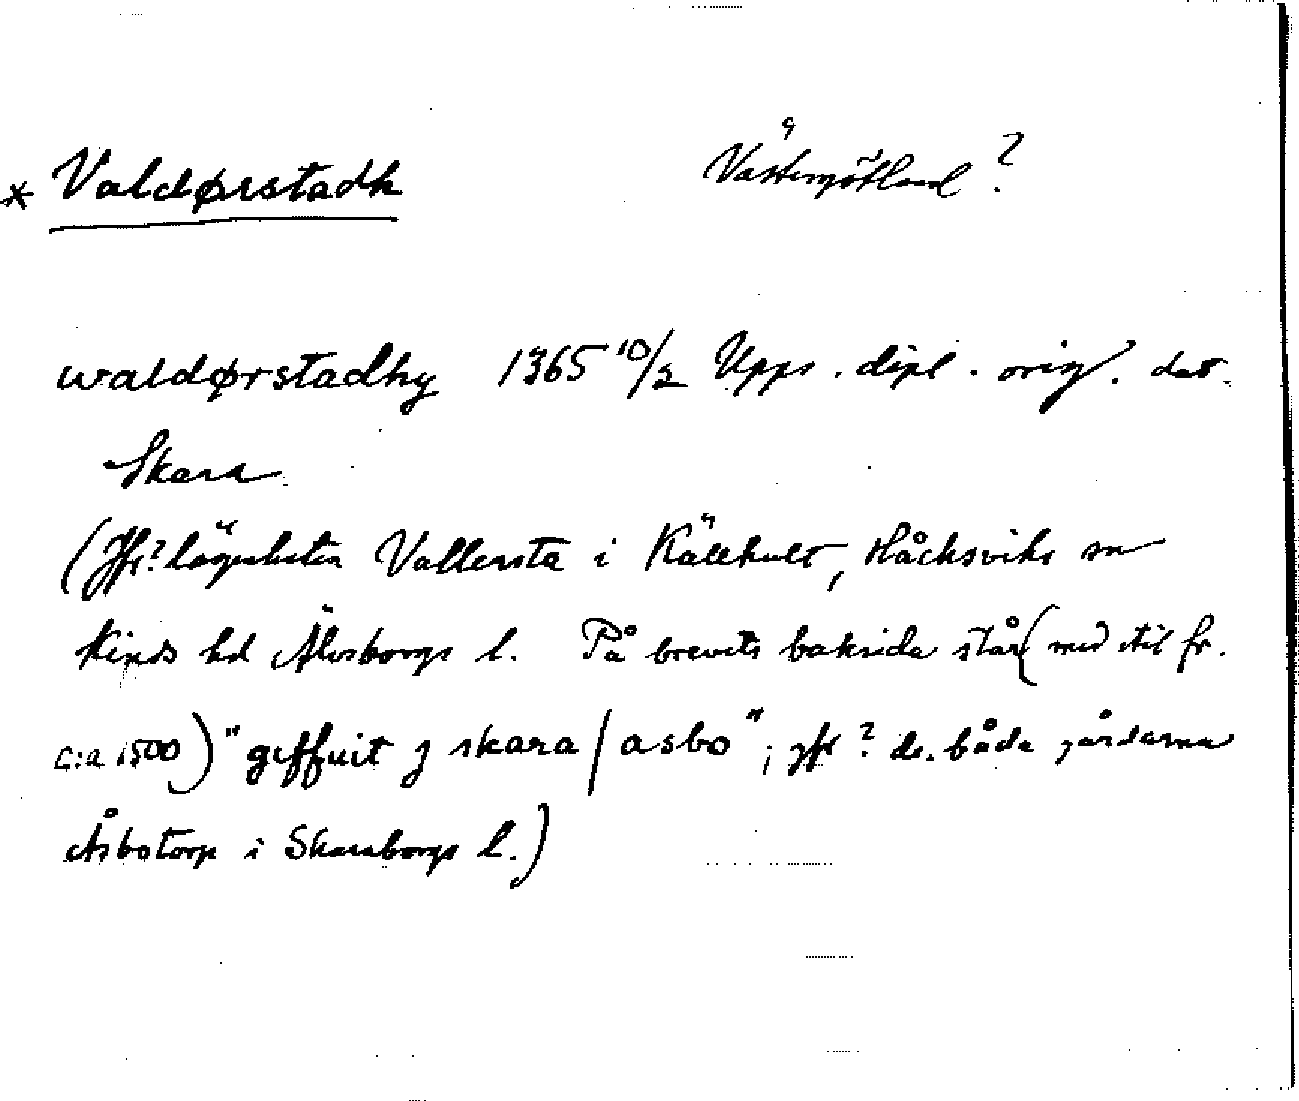 * Valdørstadh Västergötland ?
waldørstadhy 1365 10/2 Upps. dipl. orig. dat.
Skara
(Jfr? lägenheten Vallersta i Källhult, Håcksviks sn
Kinds hd Älvsborgs l. På brevets baksida står (med stil fr.
c:a 1500) "geffuit j skara / asbo"; jfr ? de båda gårdarna
Åsbotorp i Skaraborgs l.)